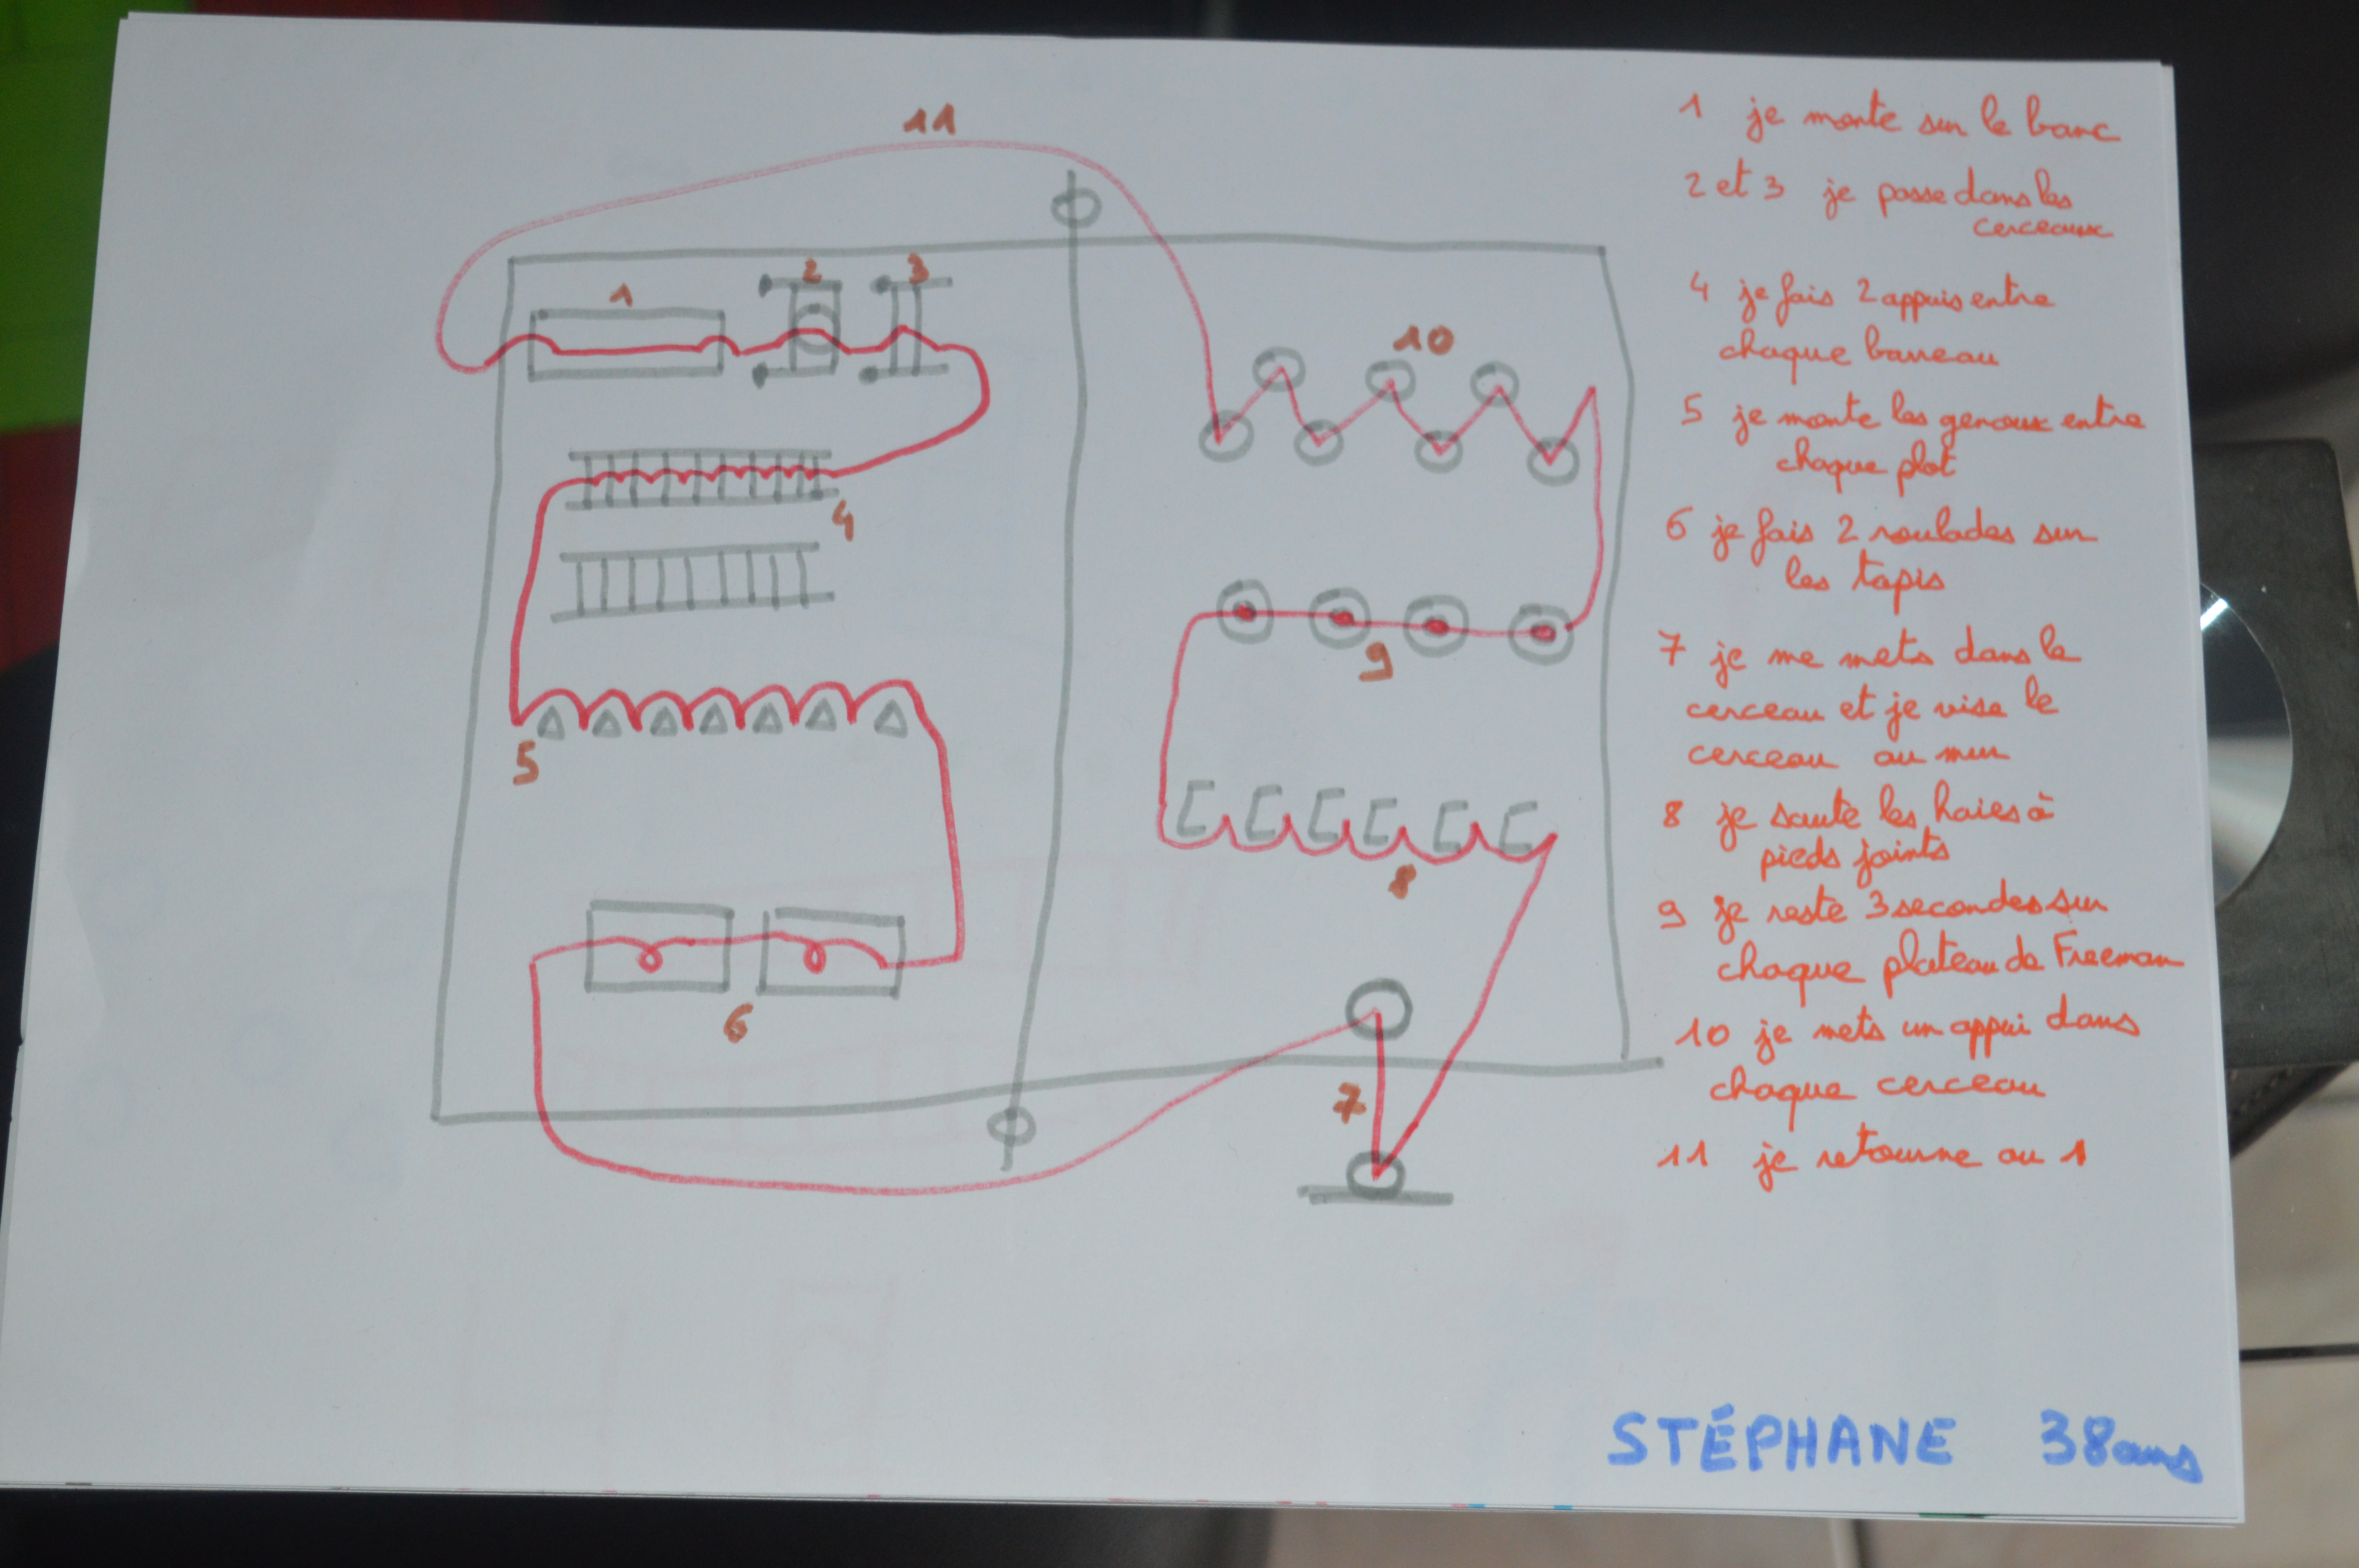 11
1 2 3
4
5
6
10
9
8
7
1 je monte sur le banc
2 et 3 je passe dans les
cerceaux
4 je fais 2 appuis entre
chaque barreau
5 je monte les genoux entre
chaque plot
6 je fais 2 roulades sur
les tapis
7 je me mets dans le
cerceau et je vise le
cerceau au mur
8 je saute les haies à
pieds joints
9 je reste 3 secondes sur
chaque plateau de Freeman
10 je mets un appui dans
chaque cerceau
11 je retourne au 1
STÉPHANE 38ans